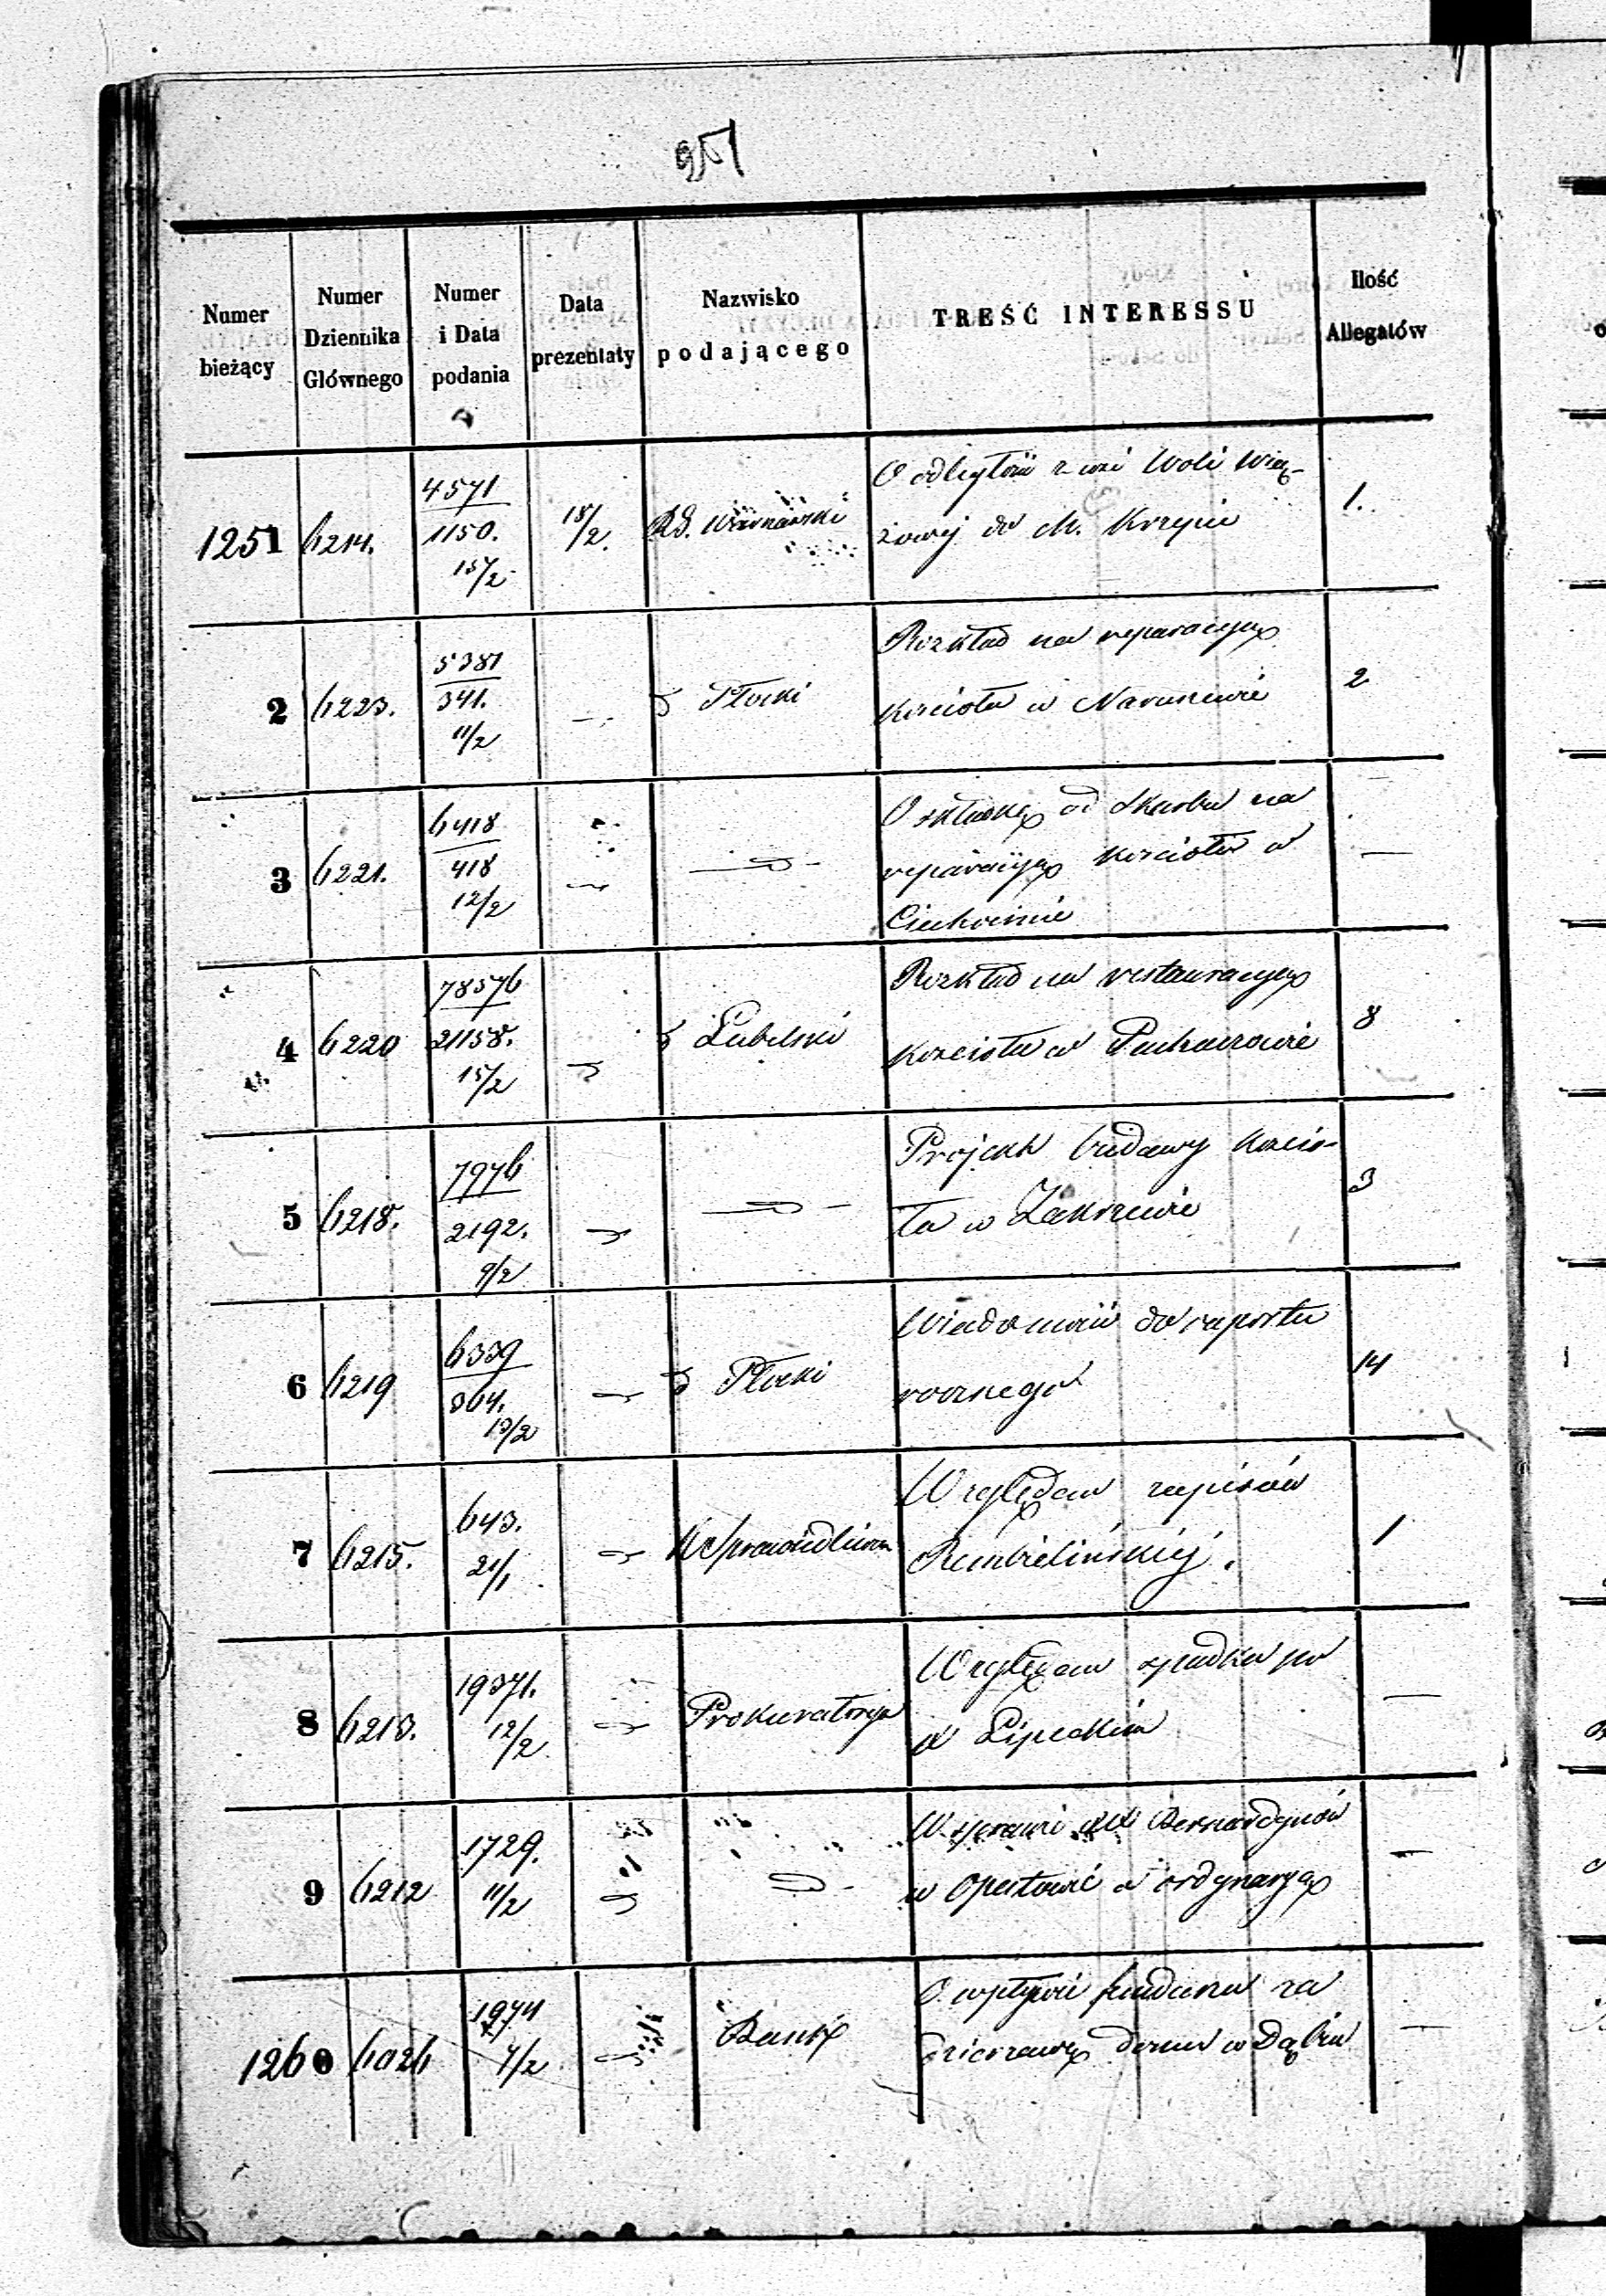 951
Numer bieżący
Numer Dziennika Głównego
Numer i Data podania
Data prezentaty
Nazwisko podającego
TREŚĆ INTERESSU
Ilość Allegatów
1251 6214. 4571 / 1150. 15/2 18/2. Rd. Warszawski O odległości z wsi Woli Wią-
żowej do M. 1.
2 6223. 5381 / 341. 11/2 — " Płocki Rozkład na reparacyę
kościoła w Naruszewie 2
3 6221. 6418 / 418 12/2 — — O składkę od Skarbu na
reparacyę kościoła w —
Ciechocinie
4 6220 78576 / 21158. 15/2 — " Lubelski Rozkład na restauracyę
kościoła w Puchaczowie 8
5 6218. 7976 / 2192. 9/2 — — Projekt budowy kościo-
ła w Zakrzewie 3
6 6219 6339 / 364. 13/2 — " Płocki Wiadomość do raportu
rocznego 14
7 6215. 643. 21/1 — K Sprawiedliwoś Względem zapisów
Rembielińskiej. 1
8 6213. 19371. 12/2 — Prokuratorya Względem spadku po
X Lipeckim —
9 6212 1729. 11/2 — — W sprawie XX Bernardynów
w Opatowie o ordynaryę —
1260 6026 1974 7/2 — Bank O wpływie funduszu za
dzierzawę domu w Dąbiu —